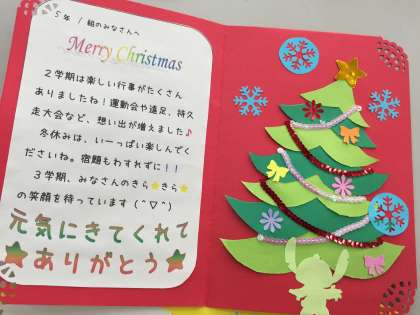 5年 1組のみなさんへ
Merry Christmas
2学期は楽しい行事がたくさん
ありましたね！運動会や遠足、持久
走大会など、想い出が増えました♪
冬休みは、いーっぱい楽しんでく
ださいね。宿題もわすれずに！！
3学期、みなさんのきら⭐きら⭐
の笑顔を待っています（^▽^）
元気にきてくれて
★ありがとう★